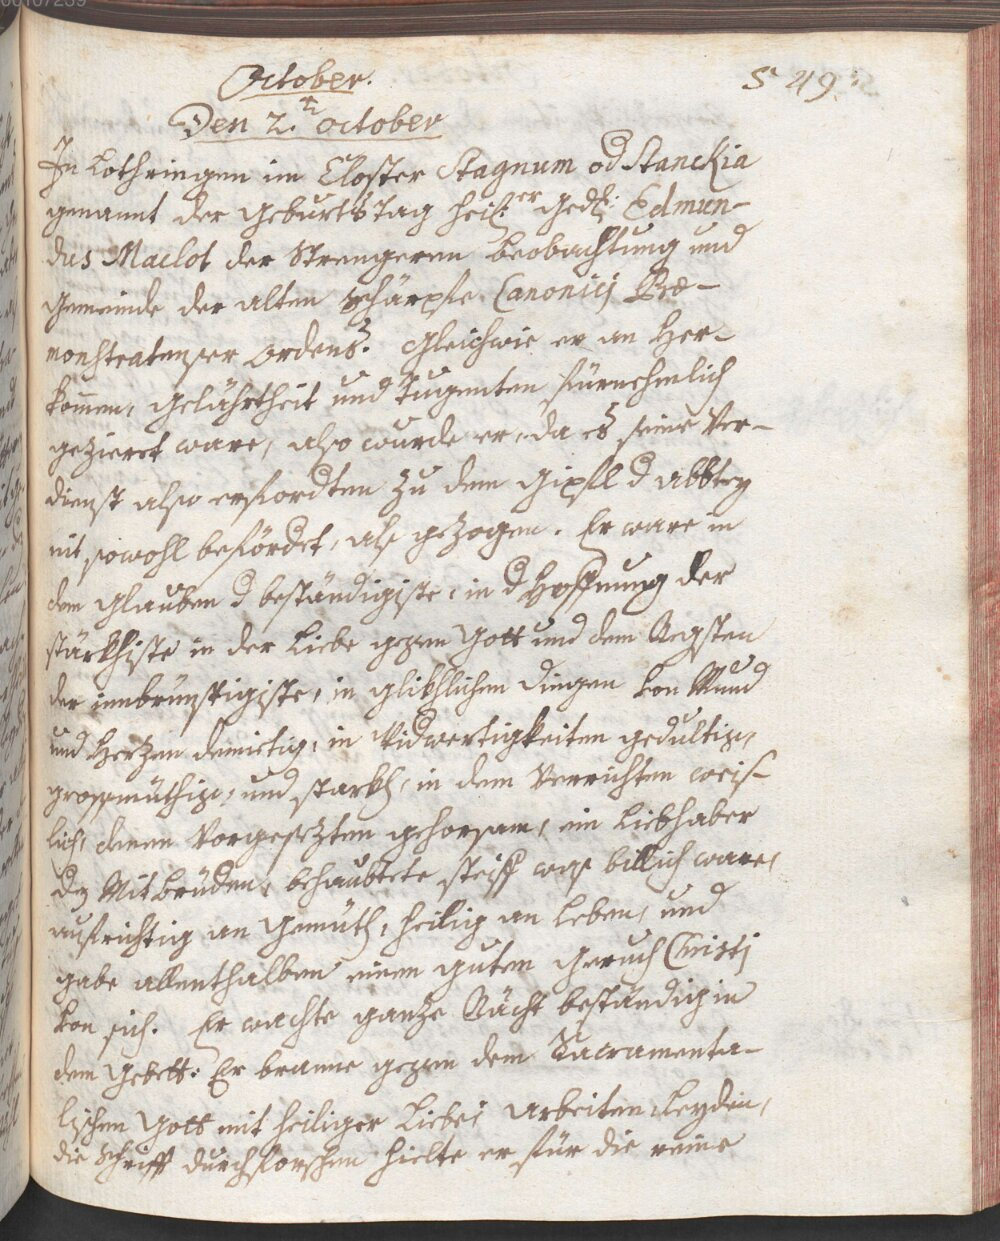 October.
S. 49.
Den 2.t october
In Lothringen im Closter Stagnum od Stanckia
genannt der geburts Tag heil:er gedk: Edmun-
dus Maclot der Strengeren beobachtung und
gemeinde der alten schärpfe Canonicj Præ-
monstratenser Ordens. Gleichwie er an Her-
kommen, gelährtheit und Tugenten fürnehmlich
gezieret ware, also wurde er, da es seine Ver-
dienst also erforderten zu dem gipfel d abbtey
nit sowohl befördet, als gezogen. Er ware in
dem glauben d beständigiste, in d Hoffnung der
stärkhiste in der Liebe gegen Gott und dem Negsten
der innbrünstigiste, in glikhlichen dingen von Mund
und Hertzen demietig, in Widwertigkeiten gedultig,
grossmüthig, und starkh, in dem Verrichten weis-
lich, denen Vorgesezten gehorsam, ein Liebhaber
der Mitbrüdern, behaubtete steiff was billich ware,
aufrichtig an gemüth, heilig an Leben, und
gabe allenthalben einen guten geruch Christj
von sich. Er wachte gantze Nächt beständig in
dem gebett: Er branne gegen dem Sacramenta-
lischen Gott mit heiliger Liebe; arbeiten, Leyden,
die Schrifft durchforschen hielte er für die reine